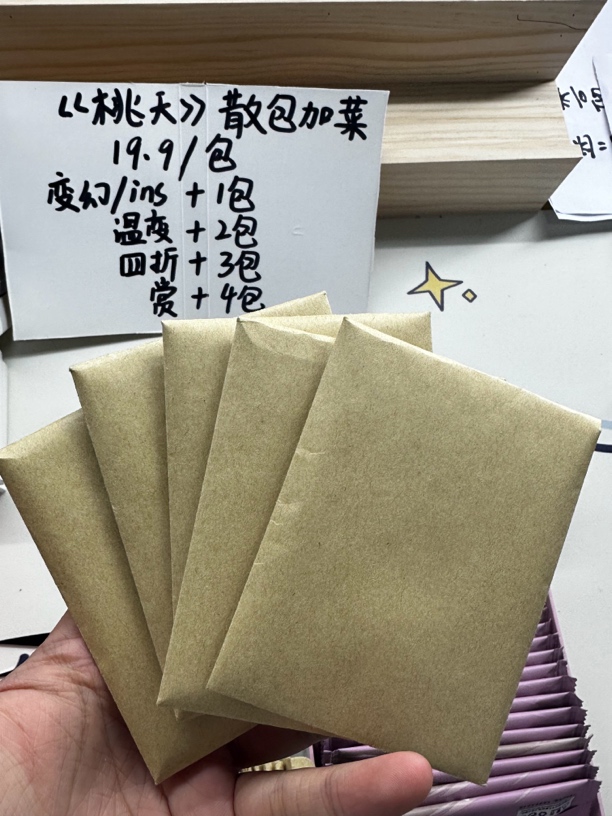 《桃夭》散包加菜
19.9/包
变幻/ins + 1包
温变 + 2包
四折 + 3包
赏 + 4包